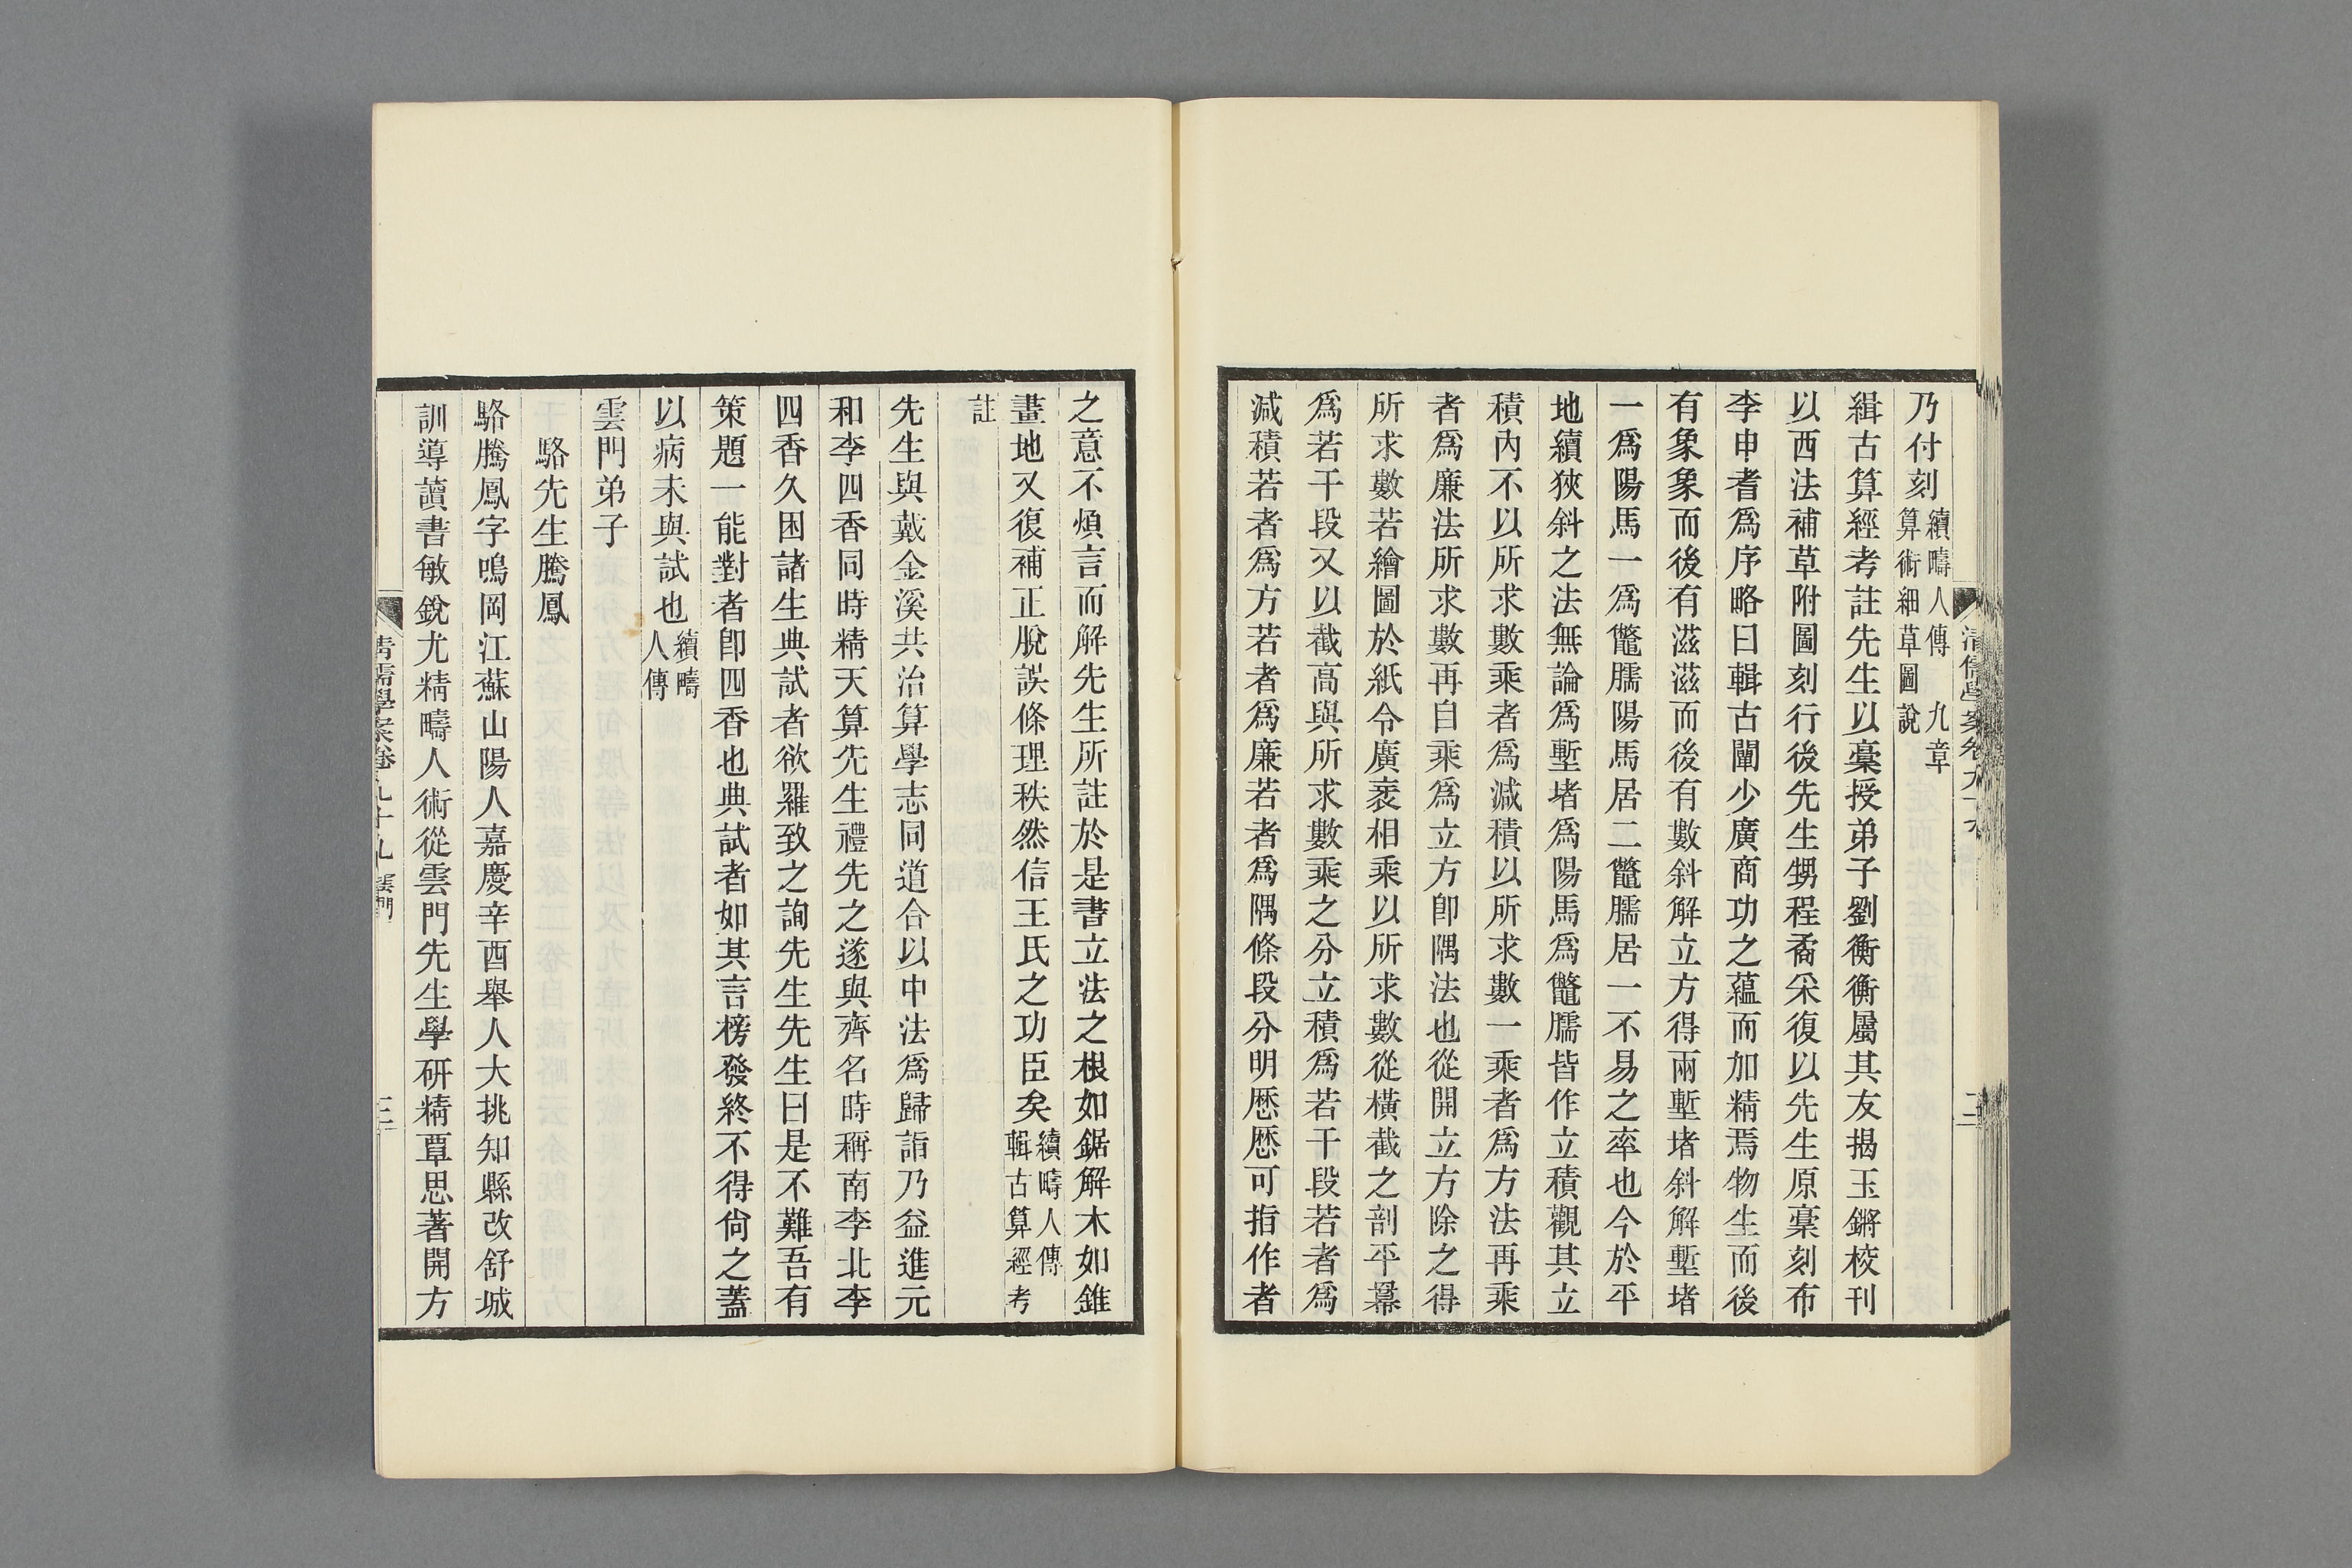 乃付刻續疇人傳　九章算術細草圖說
緝古算經考註先生以稾授弟子劉衡衡屬其友揭玉鏘校刊
以西法補草附圖刻行後先生甥程矞采復以先生原稾刻布
李申耆爲序略曰輯古闡少廣商功之蘊而加精焉物生而後
有象象而後有滋滋而後有數斜解立方得兩塹堵斜解塹堵
一爲陽馬一爲鼈臑陽馬居二鼈臑居一不易之率也今於平
地續狹斜之法無論爲塹堵爲陽馬爲鼈臑皆作立積觀其立
積內不以所求數乘者爲減積以所求數一乘者爲方法再乘
者爲廉法所求數再自乘爲立方卽隅法也從開立方除之得
所求數若繪圖於紙令廣袤相乘以所求數從橫截之剖平冪
爲若干段又以截高與所求數乘之分立積爲若干段若者爲
減積若者爲方若者爲廉若者爲隅條段分明歷歷可指作者
之意不煩言而解先生所註於是書立法之根如鋸解木如錐
畫地又復補正脫誤條理秩然信王氏之功臣矣續疇人傳輯古算經考
註
先生與戴金溪共治算學志同道合以中法爲歸詣乃益進元
和李四香同時精天算先生禮先之遂與齊名時稱南李北李
四香久困諸生典試者欲羅致之詢先生先生曰是不難吾有
策題一能對者卽四香也典試者如其言榜發終不得尙之蓋
以病未與試也續疇人傳
雲門弟子
駱先生騰鳳
駱騰鳳字鳴岡江蘇山陽人嘉慶辛酉舉人大挑知縣改舒城
訓導讀書敏銳尤精疇人術從雲門先生學研精覃思著開方
清儒學案卷九十九　雲門　三